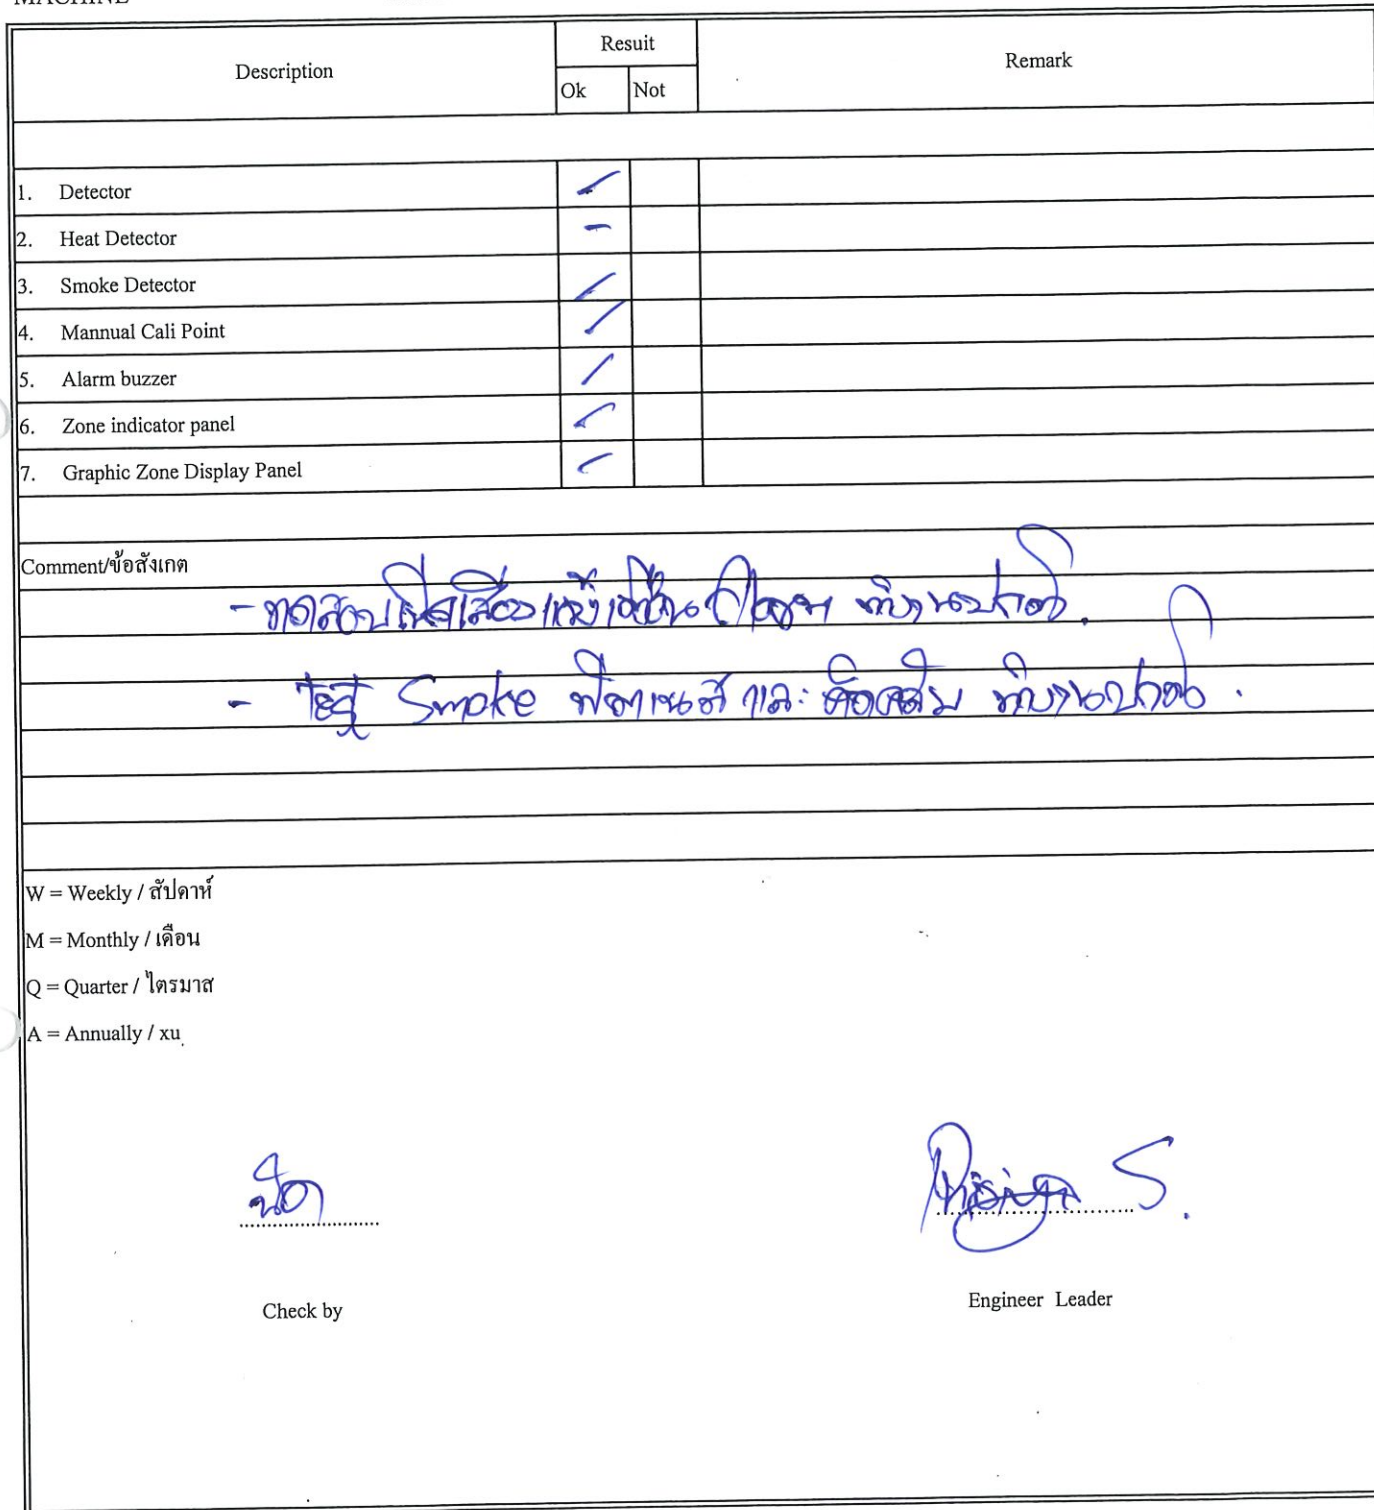 MACHINE
Description
Resuit
Remark
Ok
Not
1. Detector /
2. Heat Detector -
3. Smoke Detector /
4. Mannual Cali Point /
5. Alarm buzzer /
6. Zone indicator panel /
7. Graphic Zone Display Panel /
Comment/ข้อสังเกต
- ทดสอบ เสียงแจ้งเตือน ทำงานปกติ.
- Smoke และ ทำงานปกติ.
W = Weekly / สัปดาห์
M = Monthly / เดือน
Q = Quarter / ไตรมาส
A = Annually / xu
S.
Check by
Engineer Leader